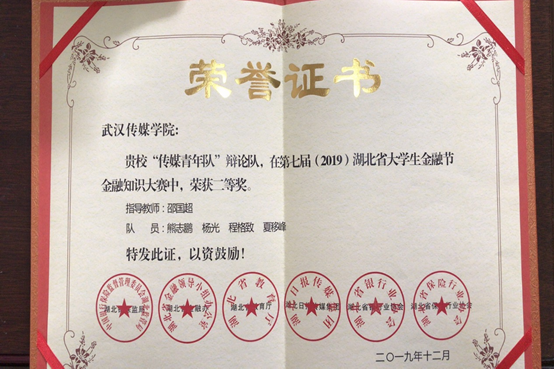 荣誉证书
武汉传媒学院：
贵校“传媒青年队”辩论队，在第七届（2019）湖北省大学生金融节
金融知识大赛中，荣获二等奖。
指导教师：邵国超
队 员：熊志鹏 杨光 程格致 夏移峰
特发此证，以资鼓励！
湖北省教育厅
湖北日报传媒集团
湖北省银行业协会
湖北省保险行业协会
二〇一九年十二月